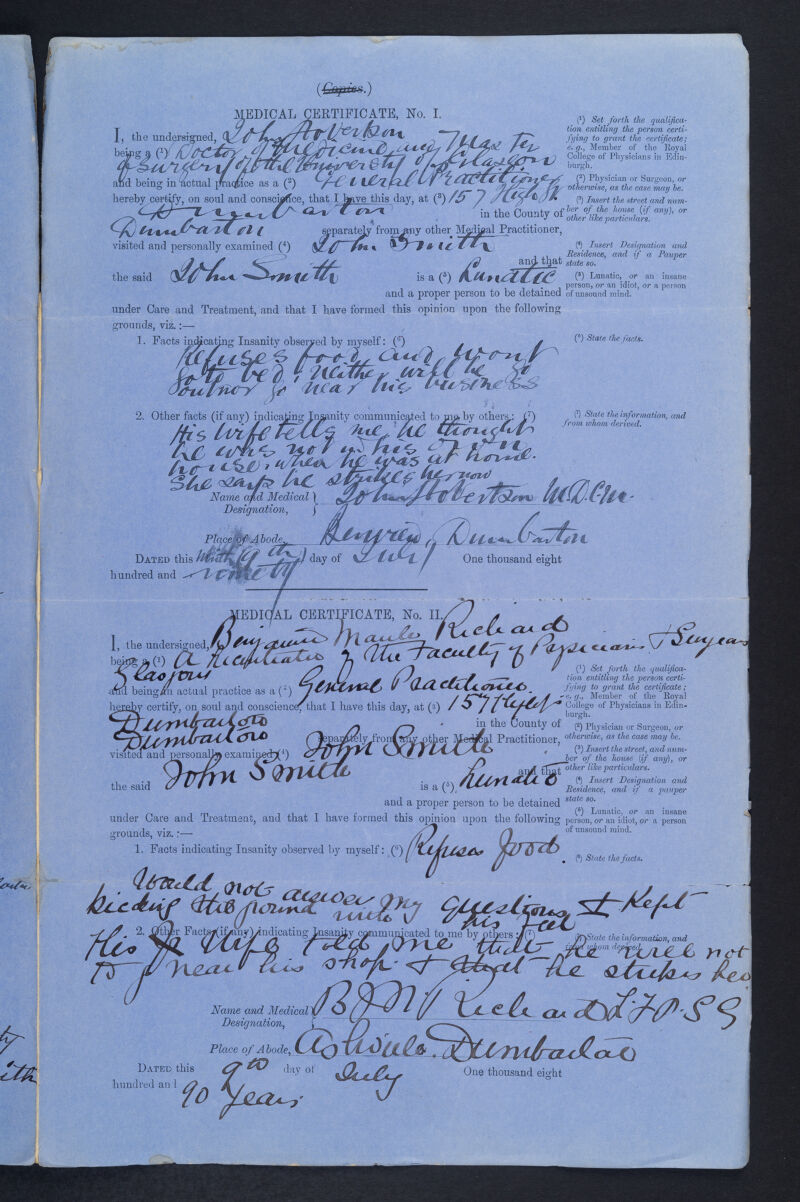 (Copies.)
MEDICAL CERTIFICATE, No. I.
I, the undersigned, John Robertson
being a (¹) Doctor of Medicine and Master
of Surgery of the University of Glasgow
and being in actual practice as a (²) General Practitioner
hereby certify, on soul and conscience, that I have this day, at (³) 157 High St.
Dumbarton in the County of
Dumbarton separately from any other Medical Practitioner,
visited and personally examined (⁴) John Smith
and that
the said John Smith is a (⁵) Lunatic
and a proper person to be detained
under Care and Treatment, and that I have formed this opinion upon the following
grounds, viz. :—
1. Facts indicating Insanity observed by myself: (⁶)
Refuses food and wont
go to bed, neither will he go
out nor go near his business
2. Other facts (if any) indicating Insanity communicated to me by others: (⁷)
His wife tells me he thought
he was not in his own
house, when he was at home.
She says he strikes her now
Name and Medical Designation, John Robertson M.D.C.M.
Place of Abode, Dumbarton
DATED this ninth (9th) day of July One thousand eight
hundred and ninety
(¹) Set forth the qualifica-
tion entitling the person certi-
fying to grant the certificate;
e.g., Member of the Royal
College of Physicians in Edin-
burgh.
(²) Physician or Surgeon, or
otherwise, as the case may be.
(³) Insert the street and num-
ber of the house (if any), or
other like particulars.
(⁴) Insert Designation and
Residence, and if a Pauper
state so.
(⁵) Lunatic, or an insane
person, or an idiot, or a person
of unsound mind.
(⁶) State the facts.
(⁷) State the information, and
from whom derived.
MEDICAL CERTIFICATE, No. II.
I, the undersigned, Benjamin Maule Richard
being a (¹) A Licentiate of the Faculty of Physicians & Surgeons
Glasgow
and being in actual practice as a (²) General Practitioner
hereby certify, on soul and conscience, that I have this day, at (³) 157 High St
Dumbarton in the County of
Dumbarton separately from any other Medical Practitioner,
visited and personally examined (⁴) John Smith
and that
the said John Smith is a (⁵) Lunatic
and a proper person to be detained
under Care and Treatment, and that I have formed this opinion upon the following
grounds, viz. :—
1. Facts indicating Insanity observed by myself: (⁶) Refuses food.
Would not answer my questions & Kept
kicking the ground with his feet
2. Other Facts (if any) indicating Insanity communicated to me by others: (⁷)
His wife told me that he will not
go near his shop & that he strikes her
Name and Medical Designation, B M Richard L.F.P.S G
Place of Abode, Dumbarton
DATED this 9th day of July One thousand eight
hundred and 90 years
(¹) Set forth the qualifica-
tion entitling the person certi-
fying to grant the certificate;
e.g., Member of the Royal
College of Physicians in Edin-
burgh.
(²) Physician or Surgeon, or
otherwise, as the case may be.
(³) Insert the street, and num-
ber of the house (if any), or
other like particulars.
(⁴) Insert Designation and
Residence, and if a pauper
state so.
(⁵) Lunatic, or an insane
person, or an idiot, or a person
of unsound mind.
(⁶) State the facts.
(⁷) State the information, and
from whom derived.